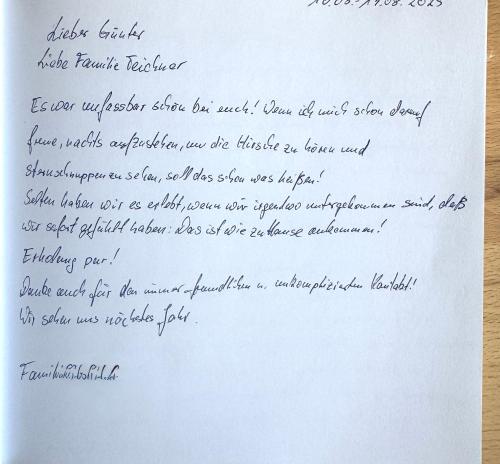 10.08.-17.08.2025
Lieber Günter
Liebe Familie Teichner
Es war unfassbar schön bei euch! Wenn ich mich schon darauf
freue, nachts aufzustehen, um die Hirsche zu hören und
Sternschnuppen zu sehen, soll das schon was heißen!
Selten haben wir es erlebt, wenn wir irgendwo untergekommen sind, daß
wir sofort gefühlt haben: Das ist wie zu Hause ankommen!
Erholung pur!
Danke auch für den immer freundlichen u. unkomplizierten Kontakt!
Wir sehen uns nächstes Jahr.
Familie